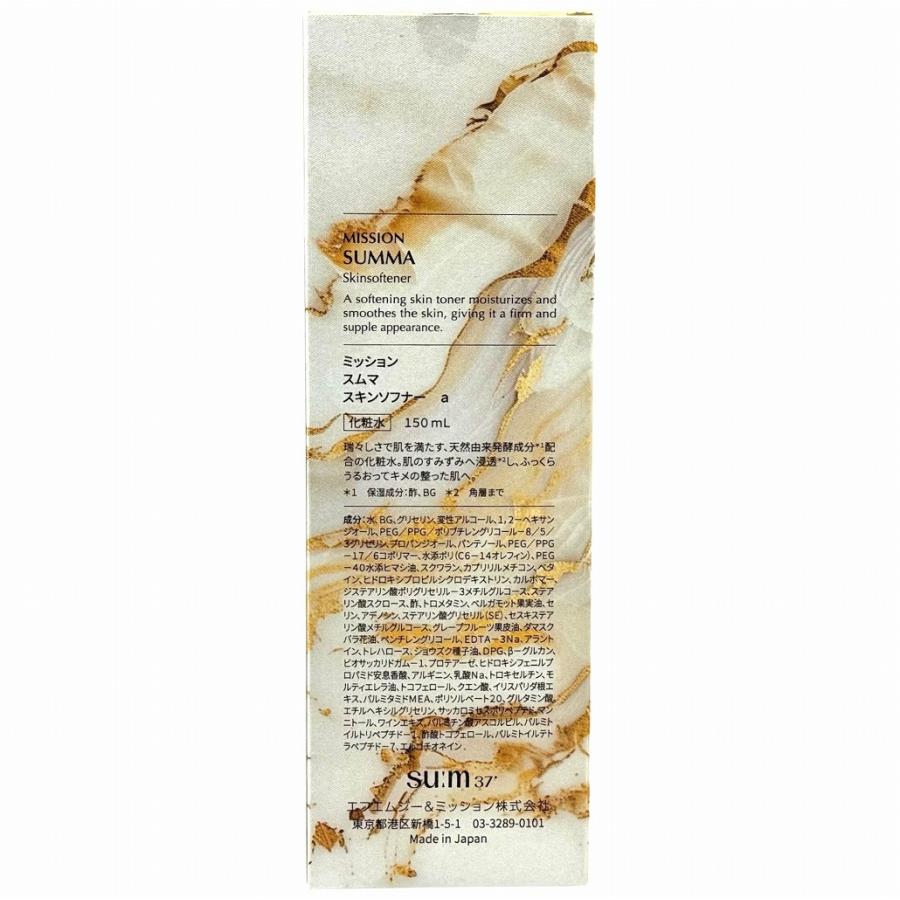 MISSION
SUMMA
Skinsoftener
A softening skin toner moisturizes and
smoothes the skin, giving it a firm and
supple appearance.
ミッション
スムマ
スキンソフナー a
化粧水 150mL
瑞々しさで肌を満たす、天然由来発酵成分*1配
合の化粧水。肌のすみずみへ浸透*2し、ふっくら
うるおってキメの整った肌へ。
*1 保湿成分：酢、BG *2 角層まで
成分：水、BG、グリセリン、変性アルコール、1,2-ヘキサン
ジオール、PEG/PPG/ポリブチレングリコール-8/5/
3グリセリン、プロパンジオール、パンテノール、PEG/PPG
-17/6コポリマー、水添ポリ(C6-14オレフィン)、PEG
-40水添ヒマシ油、スクワラン、カプリリルメチコン、ベタ
イン、ヒドロキシプロピルシクロデキストリン、カルボマー、
ジステアリン酸ポリグリセリル-3メチルグルコース、ステア
リン酸スクロース、酢、トロメタミン、ベルガモット果実油、セ
リン、アデノシン、ステアリン酸グリセリル(SE)、セスキステア
リン酸メチルグルコース、グレープフルーツ果皮油、ダマスク
バラ花油、ペンチレングリコール、EDTA-3Na、アラント
イン、トレハロース、ショウズク種子油、DPG、β-グルカン、
ビオサッカリドガム-1、プロテアーゼ、ヒドロキシフェニルプ
ロパミド安息香酸、アルギニン、乳酸Na、トロキセルチン、モ
ルティエレラ油、トコフェロール、クエン酸、イリスパリダ根エ
キス、パルミタミドMEA、ポリソルベート20、グルタミン酸、
エチルヘキシルグリセリン、サッカロミセスポリペプチド、マン
ニトール、ワインエキス、パルミチン酸アスコルビル、パルミト
イルトリペプチド-1、酢酸トコフェロール、パルミトイルテト
ラペプチド-7、エルゴチオネイン.
su:m37°
エフエムジー&ミッション株式会社
東京都港区新橋1-5-1 03-3289-0101
Made in Japan